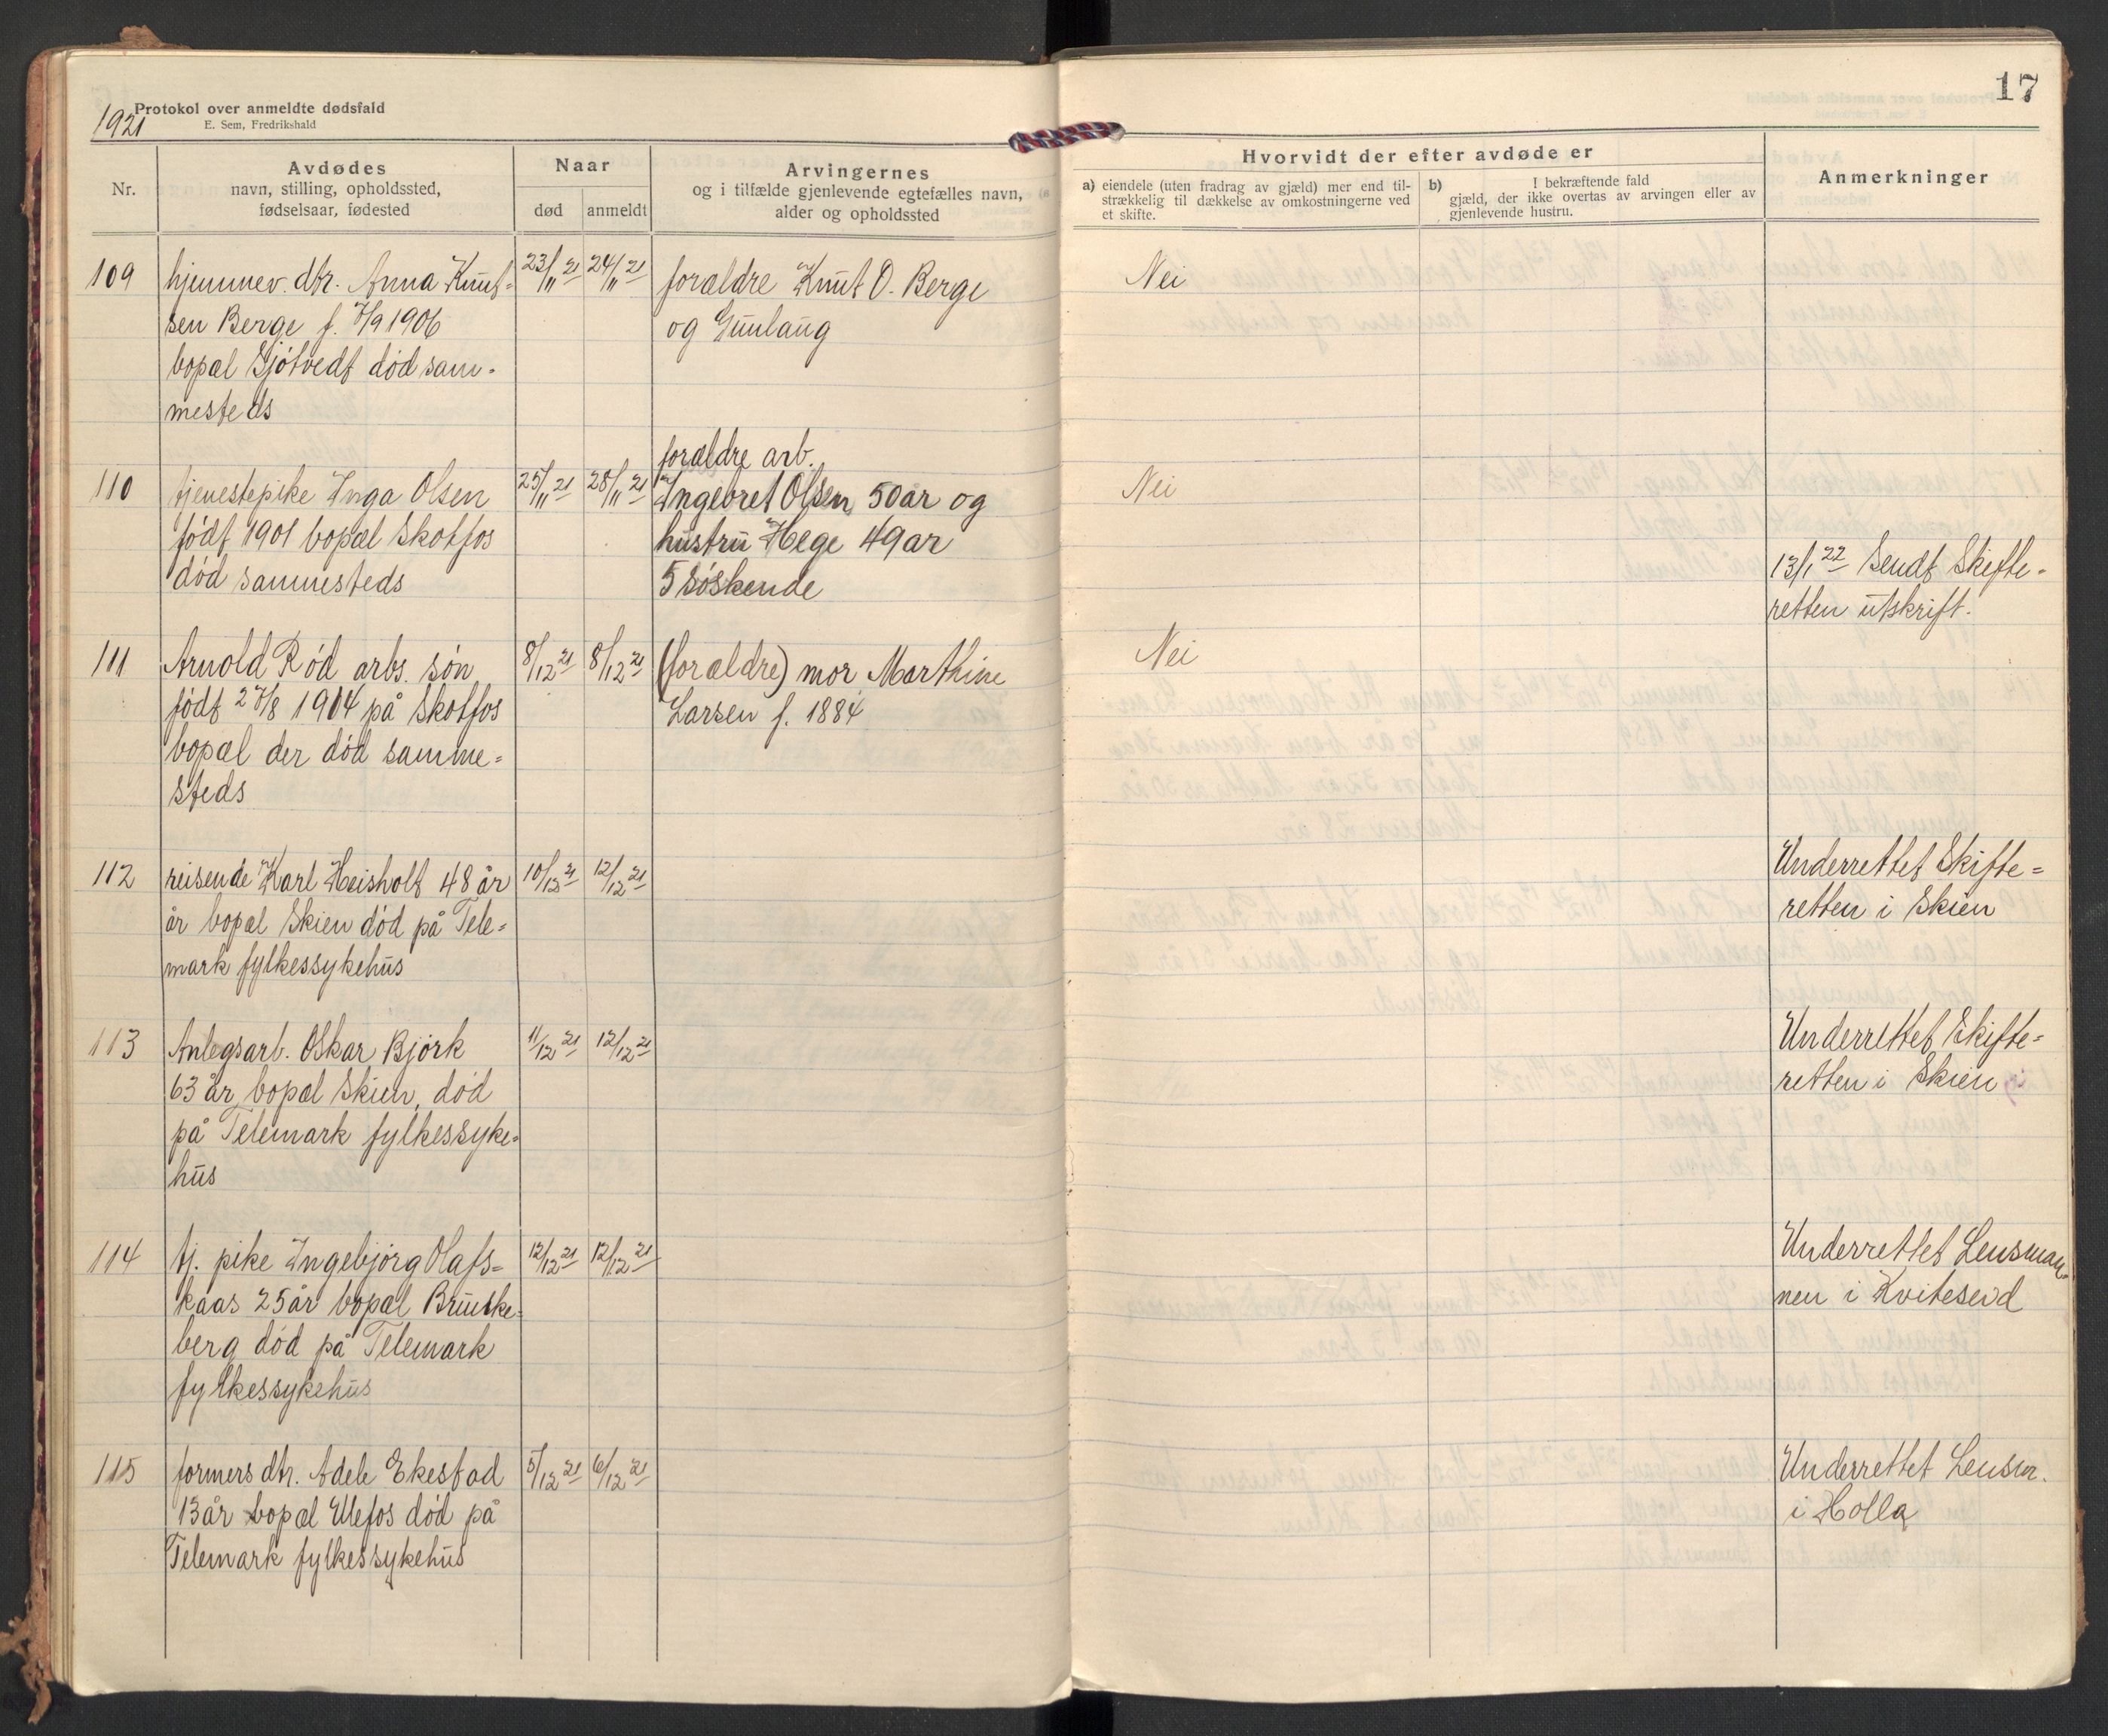 17
Protokol over anmeldte dødsfald
1921
E. Sem, Fredrikshald
Nr.
Avdødes
navn, stilling, opholdssted,
fødselsaar, fødested
Naar
død
anmeldt
Arvingernes
og i tilfælde gjenlevende egtefælles navn,
alder og opholdssted
Hvorvidt der efter avdøde er
a) eiendele (uten fradrag av gjæld) mer end til-
strækkelig til dækkelse av omkostningerne ved
et skifte.
b) I bekræftende fald
gjæld, der ikke overtas av arvingen eller av
gjenlevende hustru.
Anmerkninger
109
hjemmev. dtr. Anna Knut-
sen Berge f. 7/9 1906
bopæl Gjötvedt död sam-
mesteds
23/11 21
24/11 21
forældre Knut O. Berge
og Gunlaug
Nei
110
tjenestepike Inga Olsen
født 1901 bopæl Skotfos
död sammesteds
25/11 21
28/11 21
forældre arb.
Ingebret Olsen 50 år og
hustru Hege 49 ar
5 söskende
Nei
13/1 22 Sendt Skifte-
retten utskrift.
111
Arnold Röd arbs. sön
födt 27/8 1914 på Skotfos
bopæl der död samme-
steds
8/12 21
8/12 21
(forældre) mor Marthine
Larsen f. 1884
Nei
112
reisende Karl Heisholt 48 år
år bopæl Skien död på Tele-
mark fylkessykehus
10/12 21
12/12 21
Underrettet Skifte-
retten i Skien
113
Anlegsarb. Oskar Björk
63 år, bopæl Skien, död
på Telemark fylkessyke-
hus
11/12 21
12/12 21
Underrettet Skifte-
retten i Skien
114
tj. pike Ingebjörg Olafs-
kaas 25 år bopæl Brunke-
berg död på Telemark
fylkessykehus
12/12 21
12/12 21
Underrettet Lensman-
nen i Kviteseid
115
formers dtr. Adele Ekestad
13 år bopæl Ulefos död på
Telemark fylkessykehus
5/12 21
6/12 21
Underrettet Lensm.
i Holla